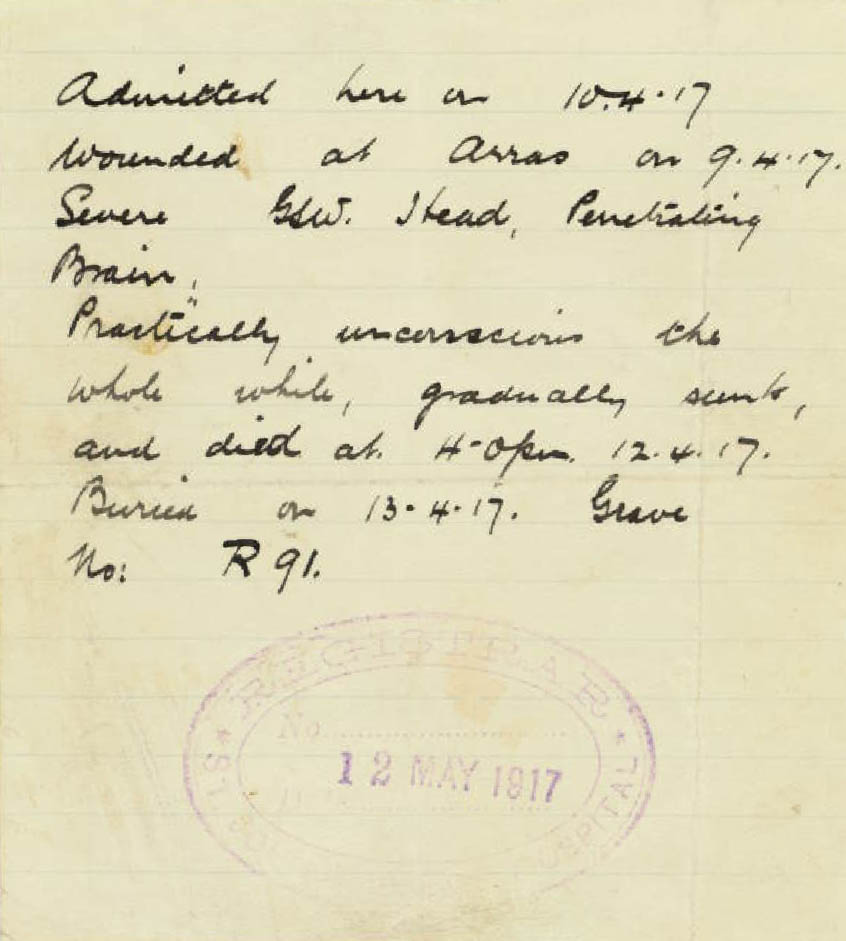 Admitted here on 10.4.17
Wounded at Arras on 9.4.17.
Severe GSW. Head, Penetrating
Brain,
Practically unconscious the
whole while, gradually sunk,
and died at 4-0pm. 12.4.17.
Buried on 13.4.17. Grave
No: R 91.
REGISTRAR
No
12 MAY 1917
HOSPITAL